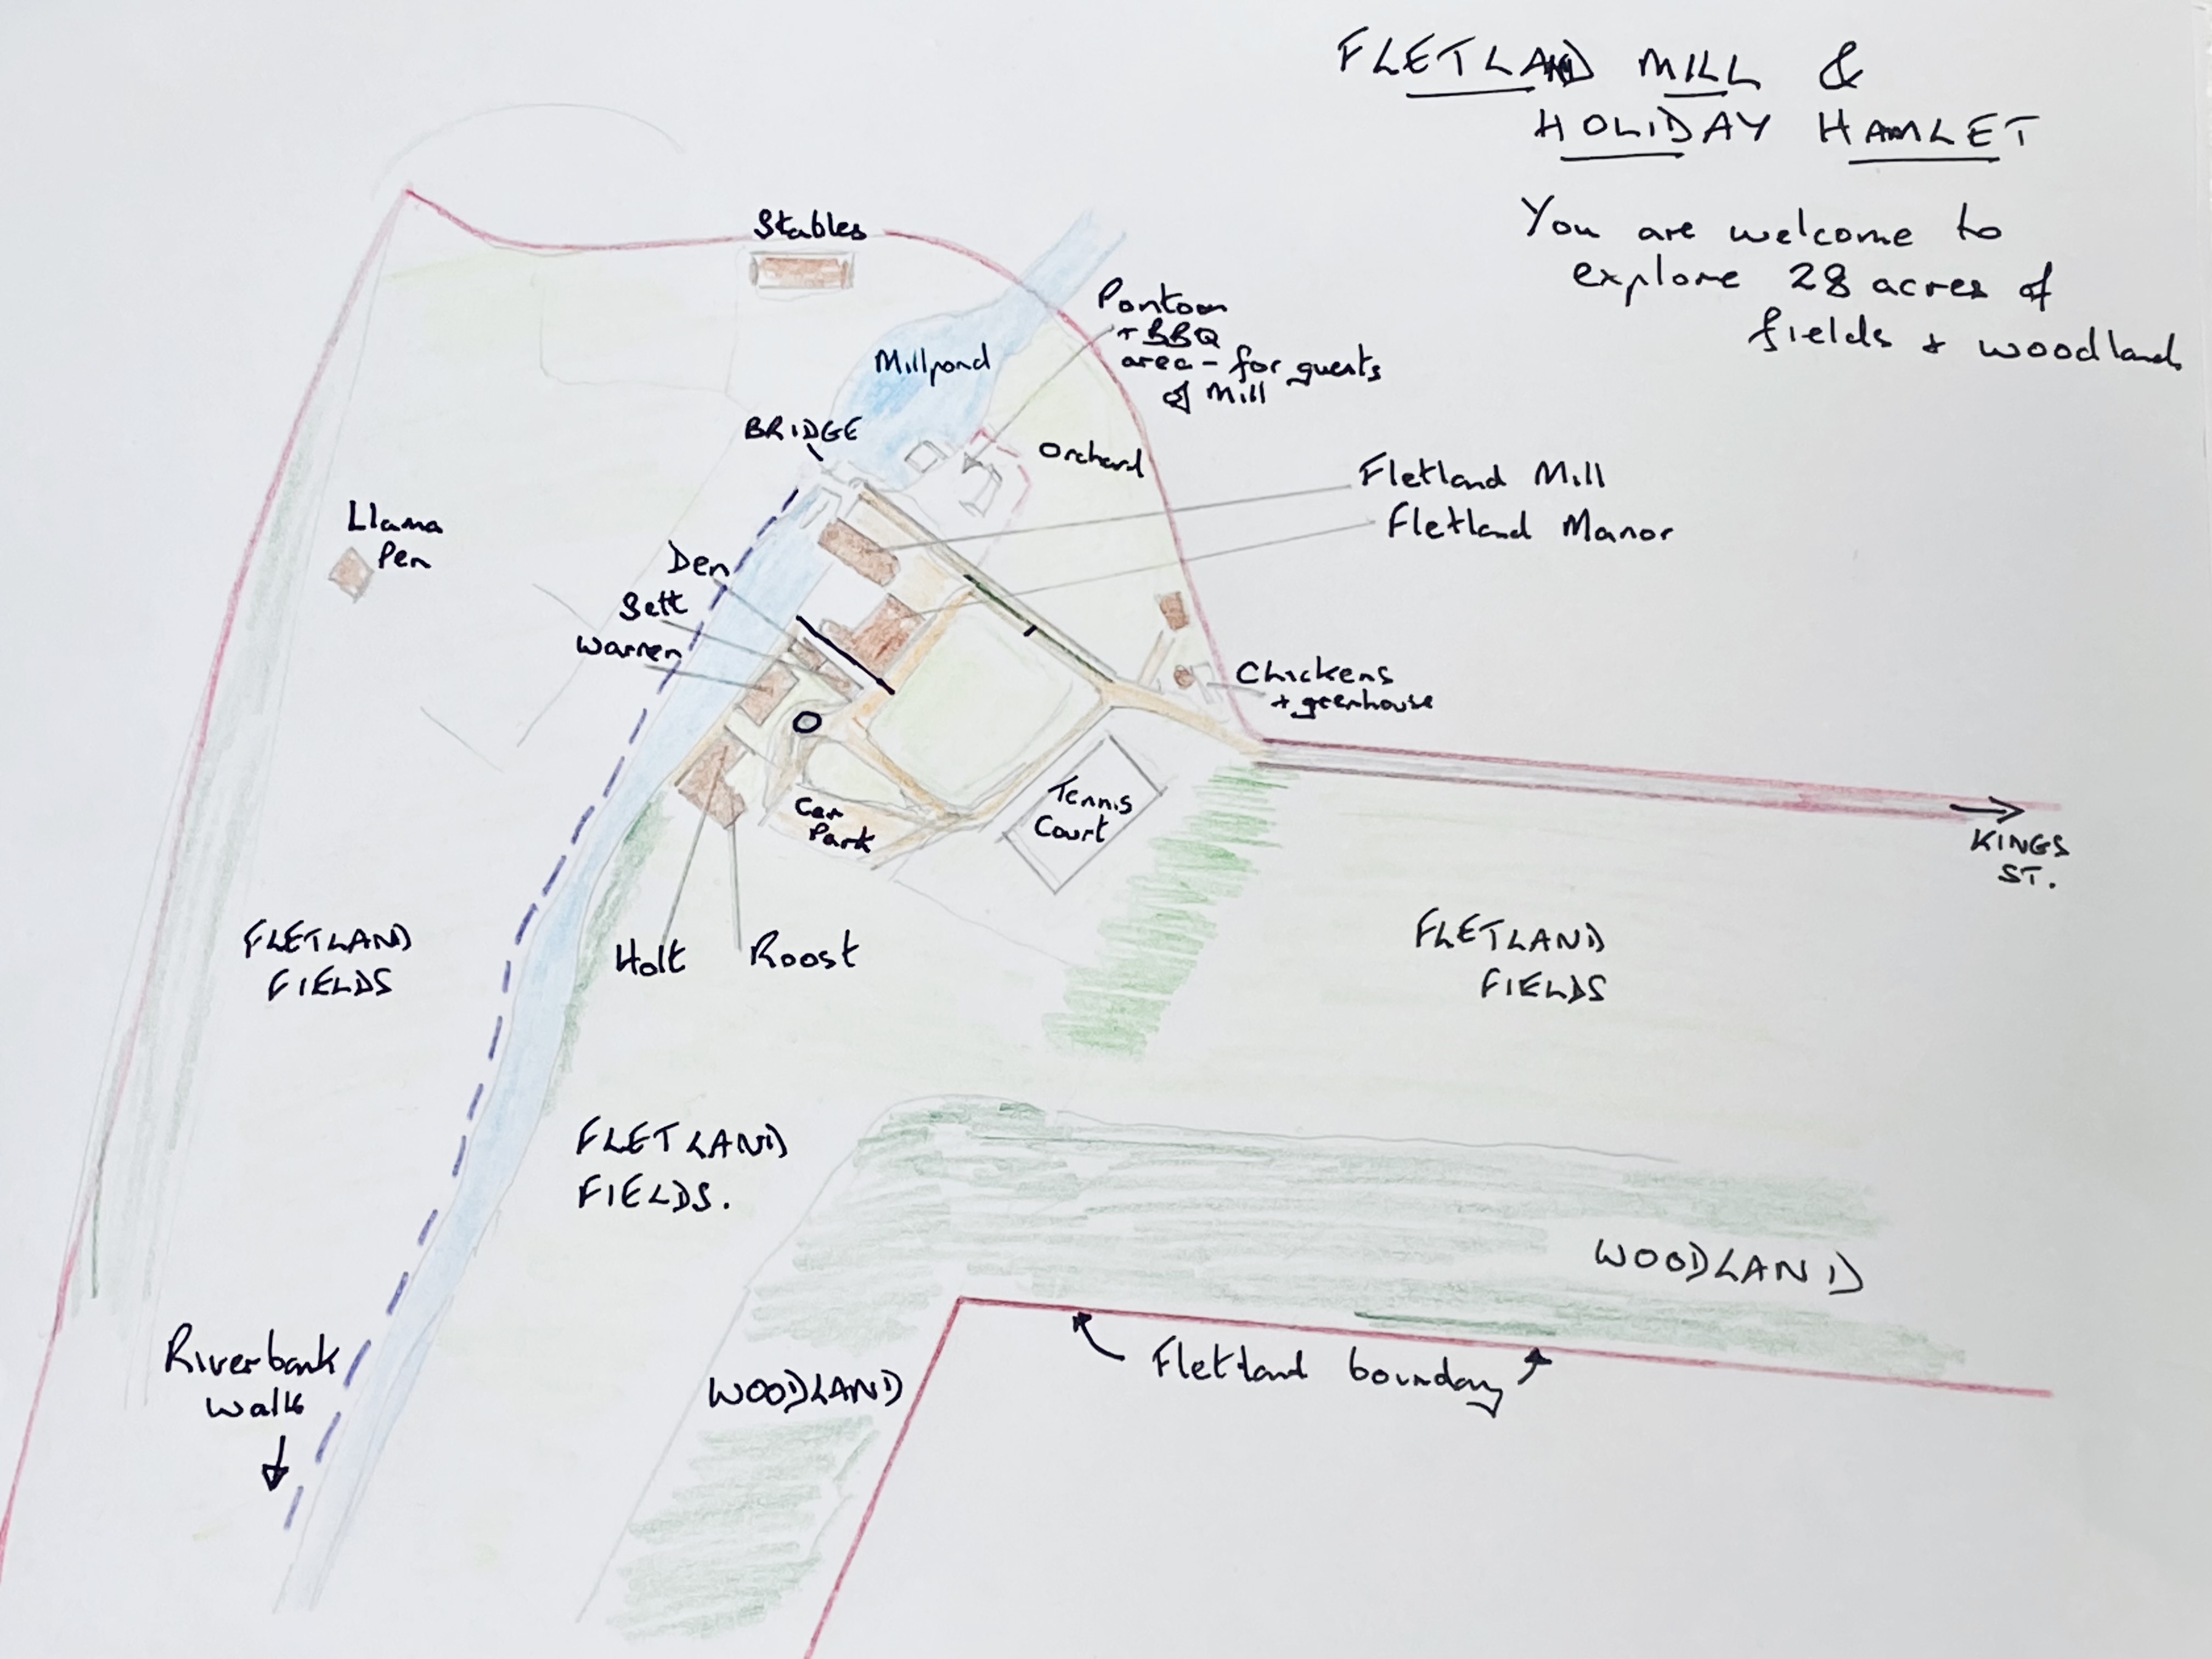 FLETLAND MILL &
HOLIDAY HAMLET
You are welcome to
explore 28 acres of
fields + woodland
Stables
Pontoon
+ BBQ
area - for guests
of Mill
Millpond
BRIDGE
Orchard
Fletland Mill
Fletland Manor
Llama
Pen
Den
Sett
Warren
Chickens
+ greenhouse
Tennis
Court
Car
Park
KINGS
ST.
Holt
Roost
FLETLAND
FIELDS
FLETLAND
FIELDS
FLETLAND
FIELDS.
WOODLAND
Fletland boundary
Riverbank
Walk
WOODLAND